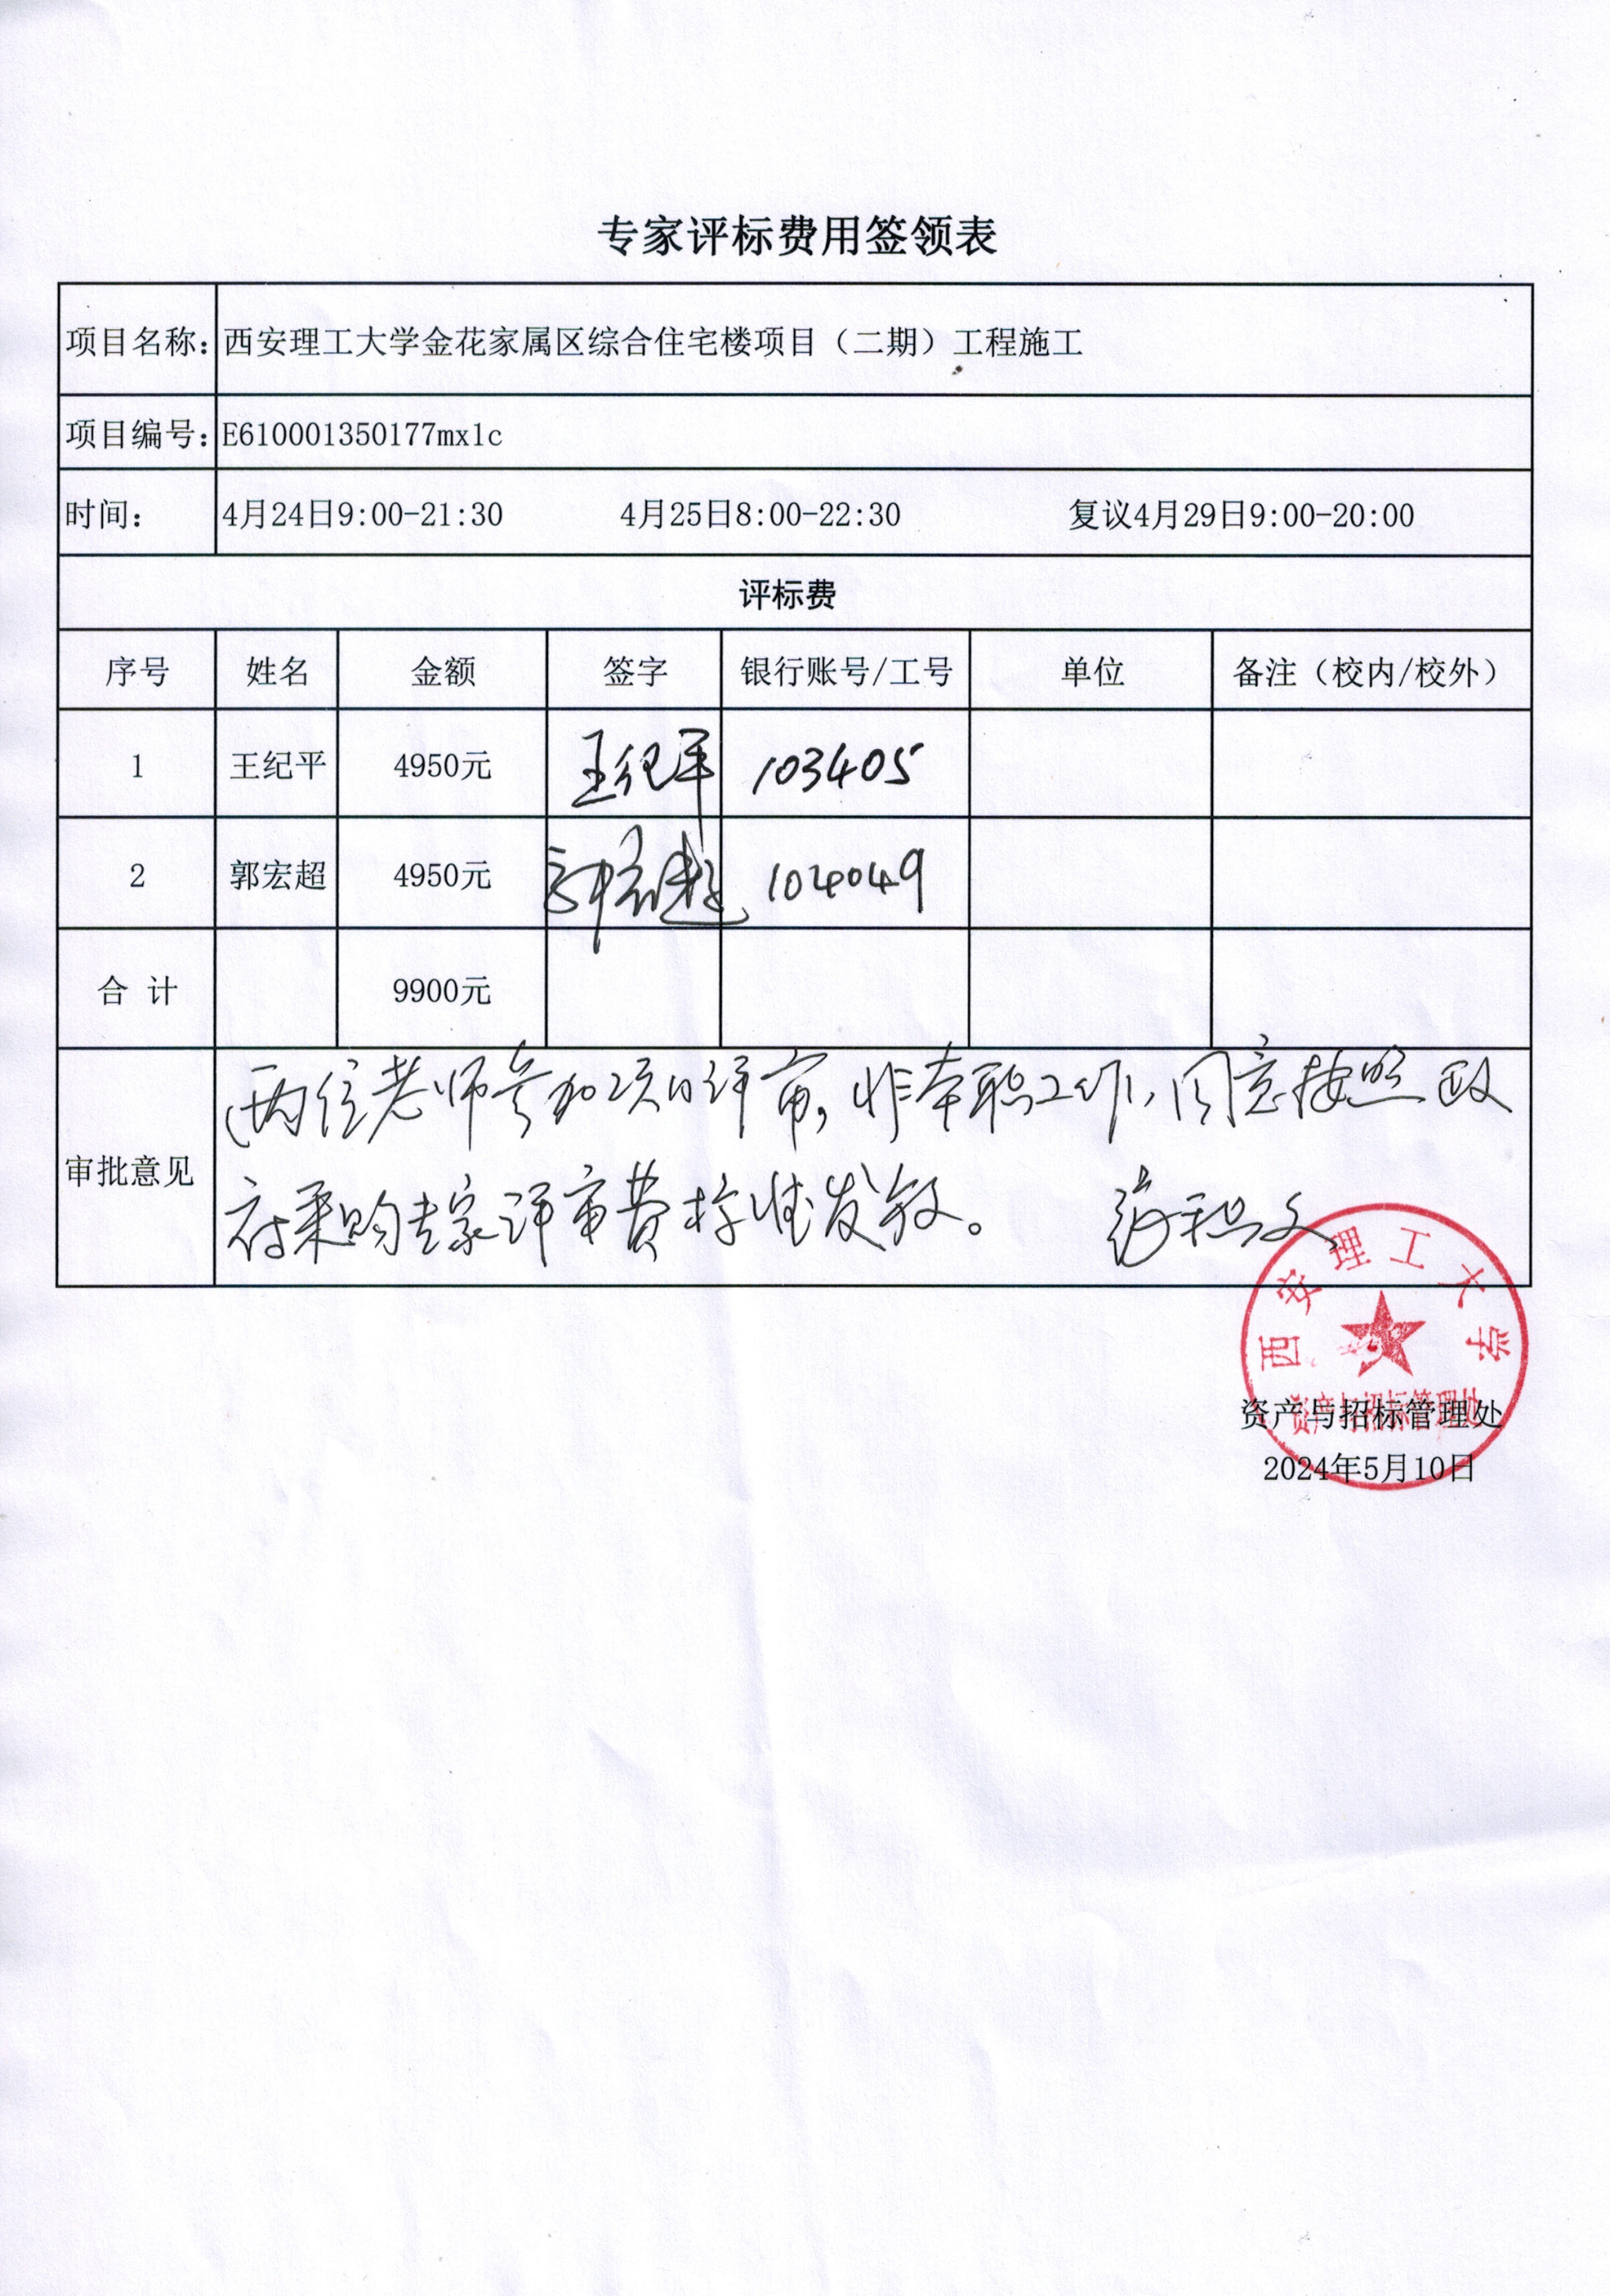 专家评标费用签领表
项目名称: 西安理工大学金花家属区综合住宅楼项目（二期）工程施工
项目编号: E610001350177mx1c
时间: 4月24日9:00-21:30 4月25日8:00-22:30 复议4月29日9:00-20:00
评标费
序号 姓名 金额 签字 银行账号/工号 单位 备注（校内/校外）
1 王纪平 4950元 王纪平 103405
2 郭宏超 4950元 郭宏超 104049
合 计 9900元
审批意见
两位老师参加项目评审，非本职工作，同意按照政
府采购专家评审费标准发放。
西安理工大学
资产与招标管理处
资产与招标管理处
2024年5月10日